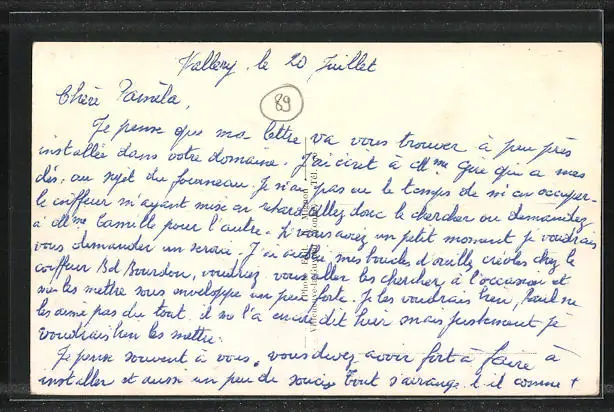 Vallery le 20 Juillet
Chère Paméla,
89
Je pense que ma lettre va vous trouver à peu près
installée dans votre domaine. J'ai écrit à Mme Guie qui a mes
clés, au sujet du fourneau. Je n'ai pas eu le temps de m'en occuper.
le coiffeur m'ayant mise en retard allez donc le chercher ou demandez
à Mme Camille pour l'autre. Si vous avez un petit moment je voudrais
vous demander un service. J'ai oublié mes boucles d'oreilles créoles chez le
coiffeur Bd Bourdon, voudriez vous aller les chercher à l'occasion et
me les mettre sous enveloppe un peu forte. Je les voudrais bien, Paul ne
les aime pas du tout il me l'a encore dit hier mais justement je
voudrais bien les mettre.
Je pense souvent à vous, vous devez avoir fort à faire à
installer et aussi un peu de soucis tout s'arrange t il comme